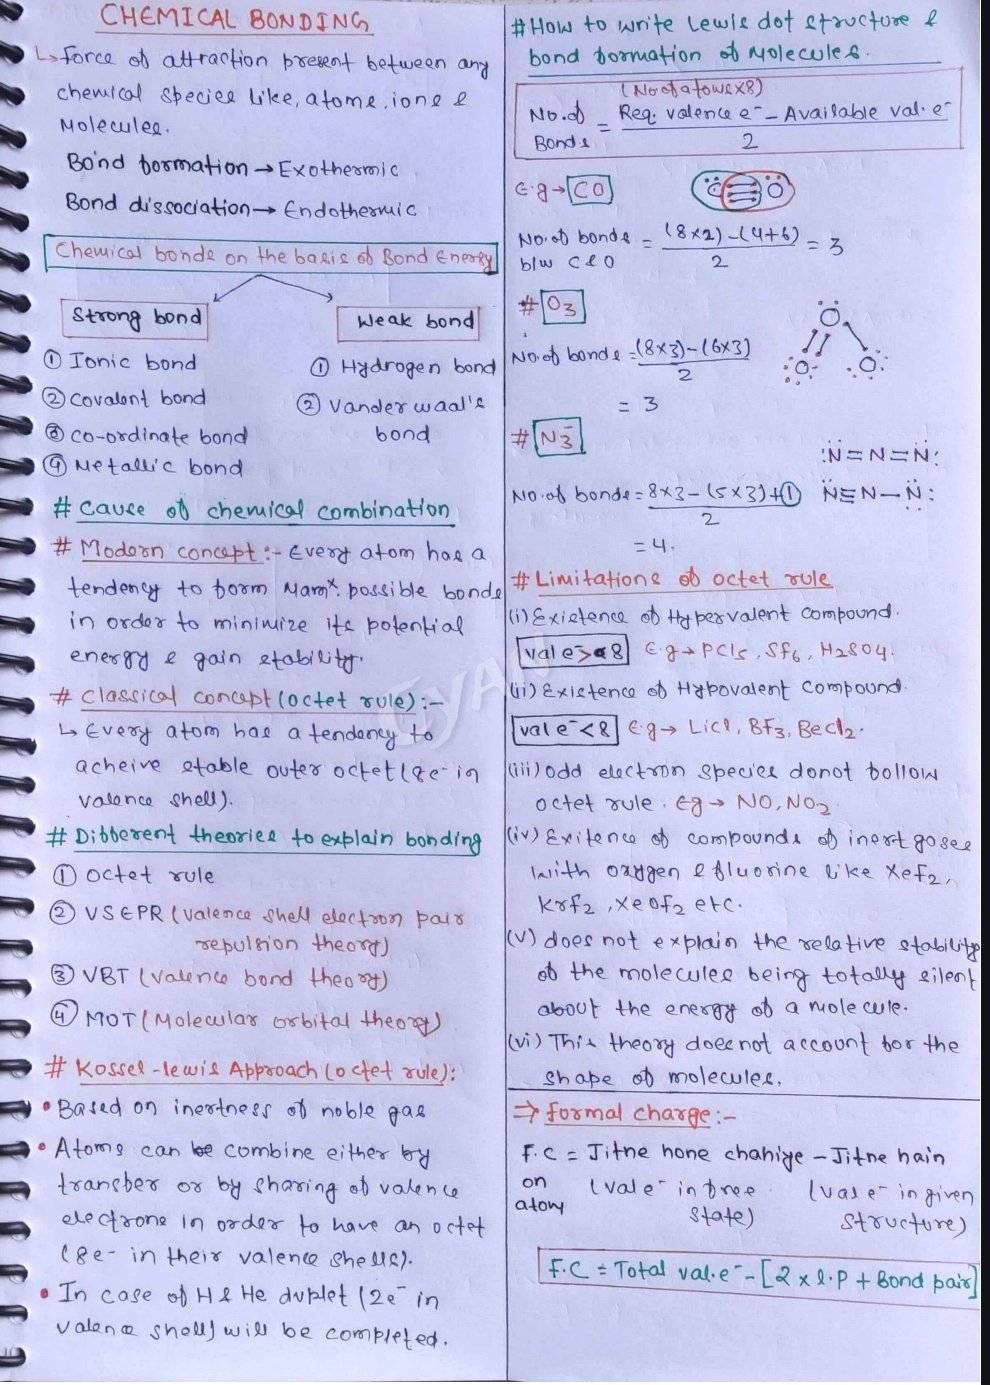 CHEMICAL BONDING
↳ Force of attraction present between any
chemical species like, atoms, ions &
Molecules.
Bond formation → Exothermic
Bond dissociation → Endothermic
Chemical bonds on the basis of Bond Energy
Strong bond
① Ionic bond
② Covalent bond
③ Co-ordinate bond
④ Metallic bond
Weak bond
① Hydrogen bond
② Vander waal's
bond
# Cause of chemical combination
# Modern concept :- Every atom has a
tendency to form Mamˣ. possible bonds
in order to minimize its potential
energy & gain stability.
# Classical concept (octet rule) :-
↳ Every atom has a tendency to
acheive stable outer octet (8e⁻ in
valence shell).
# Different theories to explain bonding
① Octet rule
② VSEPR (Valence shell electron pair
repulsion theory)
③ VBT (Valence bond theory)
④ MOT (Molecular orbital theory)
# Kossel-lewis Approach (octet rule):
• Based on inertness of noble gas
• Atoms can be combine either by
transfer or by sharing of valence
electrons in order to have an octet
(8e- in their valence shells).
• In case of H & He duplet (2e⁻ in
valence shell) will be completed.
# How to write Lewis dot structure &
bond formation of Molecules.
(No of atoms x 8)
No. of Bonds = (Req. valence e⁻ - Available val. e⁻) / 2
E.g → CO
C O
No. of bonds b/w C & O = ((8x2) - (4+6)) / 2 = 3
# O₃
O
O O
No. of bonds = ((8x3) - (6x3)) / 2
= 3
# N₃⁻
:N̈=N=N̈:
No. of bonds = (8x3 - (5x3)+①) / 2
N̈≡N-N̈:
= 4.
# Limitations of octet rule
(i) Existence of Hypervalent compound.
val e⁻ > 8 E.g → PCl₅, SF₆, H₂SO₄.
(ii) Existence of Hypovalent compound.
val e⁻ < 8 E.g → LiCl, BF₃, BeCl₂.
(iii) odd electron species donot follow
octet rule. Eg → NO, NO₂
(iv) Exitence of compounds of inert gases
with oxygen & fluorine like XeF₂,
KrF₂, XeOF₂ etc.
(v) does not explain the relative stability
of the molecules being totally silent
about the energy of a molecule.
(vi) This theory does not account for the
shape of molecules.
⇒ Formal charge :-
F.C = Jitne hone chahiye - Jitne hain
on atom (val e⁻ in free state) (val e⁻ in given structure)
F.C = Total val. e⁻ - [2 x l.P + Bond pair]
GYAN